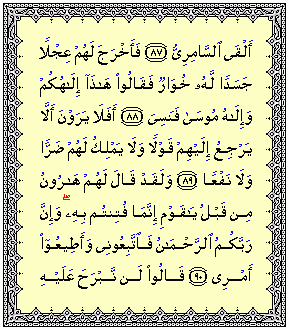 أَلْقَى ٱلسَّامِرِىُّ ﴿٨٧﴾ فَأَخْرَجَ لَهُمْ عِجْلًا
جَسَدًا لَّهُۥ خُوَارٌ فَقَالُوا۟ هَـٰذَآ إِلَـٰهُكُمْ
وَإِلَـٰهُ مُوسَىٰ فَنَسِىَ ﴿٨٨﴾ أَفَلَا يَرَوْنَ أَلَّا
يَرْجِعُ إِلَيْهِمْ قَوْلًا وَلَا يَمْلِكُ لَهُمْ ضَرًّا
وَلَا نَفْعًا ﴿٨٩﴾ وَلَقَدْ قَالَ لَهُمْ هَـٰرُونُ
مِن قَبْلُ يَـٰقَوْمِ إِنَّمَا فُتِنتُم بِهِۦ ۖ وَإِنَّ
رَبَّكُمُ ٱلرَّحْمَـٰنُ فَٱتَّبِعُونِى وَأَطِيعُوٓا۟
أَمْرِى ﴿٩٠﴾ قَالُوا۟ لَن نَّبْرَحَ عَلَيْهِ